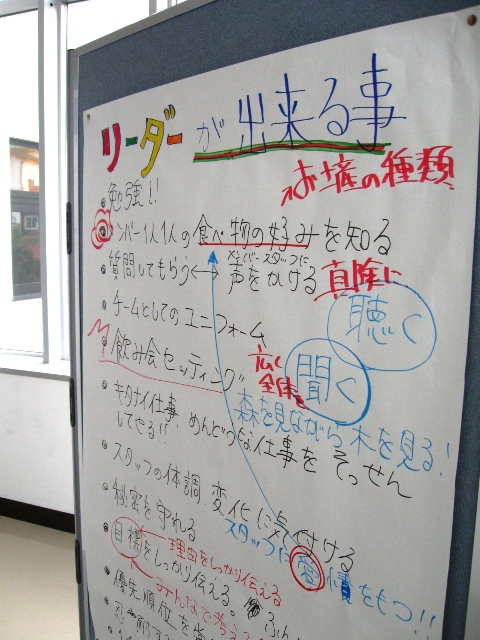 リーダーが出来る事
お塩の種類
勉強!!
メンバー1人1人の食べ物の好みを知る
メンバー・スタッフに
質問してもらう⟷声をかける 真険に
聴く
チームとしてのユニフォーム
飲み会セッティング
広く全体を
聞く
森を見ながら木を見る!
キタナイ仕事、めんどうな仕事を そっせん
してやる!!
スタッフの体調、変化に気付ける
秘密を守れる
スタッフに愛情をもつ!!
目標をしっかり伝える。
理由をしっかり伝える
みんなで考え
優先順位を